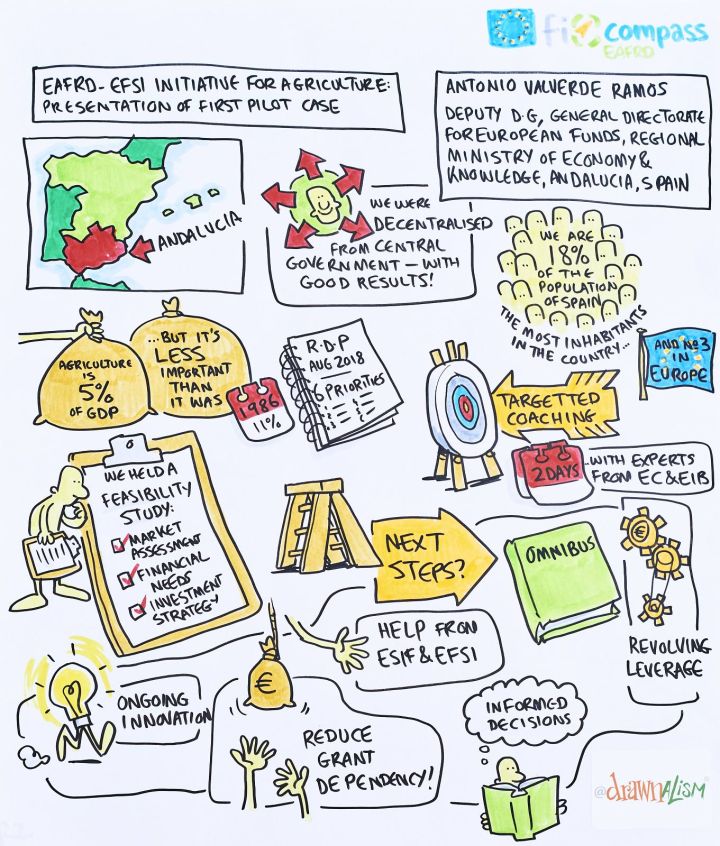 fi compass
EAFRD
EAFRD-EFSI INITIATIVE FOR AGRICULTURE:
PRESENTATION OF FIRST PILOT CASE
ANTONIO VALVERDE RAMOS
DEPUTY D.G, GENERAL DIRECTORATE
FOR EUROPEAN FUNDS, REGIONAL
MINISTRY OF ECONOMY &
KNOWLEDGE, ANDALUCIA, SPAIN
ANDALUCIA
WE WERE
DECENTRALISED
FROM CENTRAL
GOVERNMENT - WITH
GOOD RESULTS!
WE ARE
18%
OF THE
POPULATION
OF SPAIN
THE MOST INHABITANTS
IN THE COUNTRY...
AND No3
IN
EUROPE
AGRICULTURE
IS
5%
OF GDP
...BUT IT'S
LESS
IMPORTANT
THAN
IT WAS
1986
11%
R.D.P
AUG 2018
6 PRIORITIES
TARGETTED
COACHING
2 DAYS
WITH EXPERTS
FROM EC & EIB
WE HELD A
FEASIBILITY
STUDY:
MARKET
ASSESSMENT
FINANCIAL
NEEDS
INVESTMENT
STRATEGY
NEXT
STEPS?
OMNIBUS
€
REVOLVING
LEVERAGE
HELP FROM
ESIF & EFSI
€
ONGOING
INNOVATION
REDUCE
GRANT
DEPENDENCY!
INFORMED
DECISIONS
@drawnalism